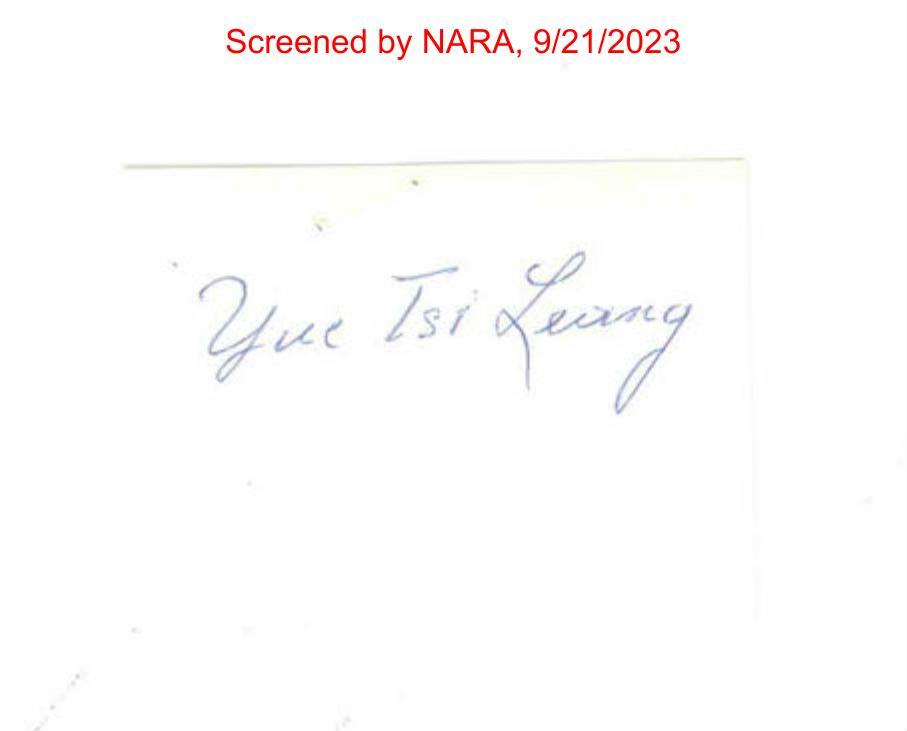 Screened by NARA, 9/21/2023
Yue Tsi Leung